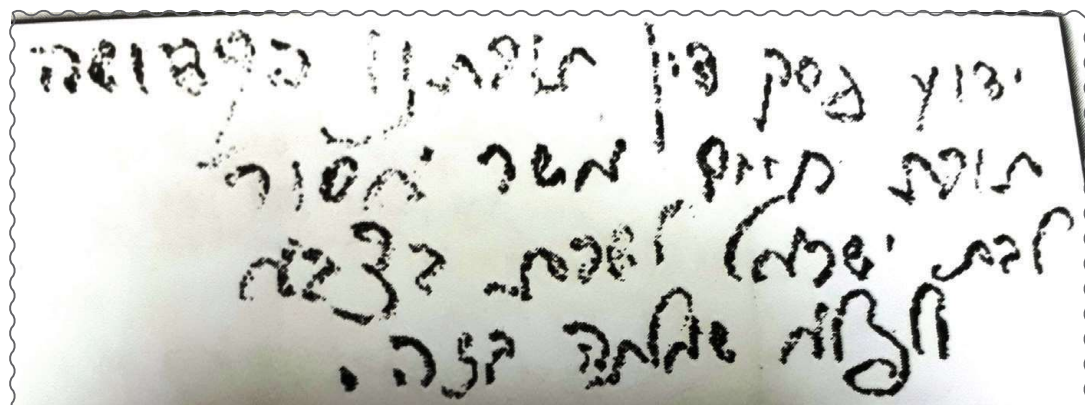 ידוע פסק דין תורתנו הקדושה
תורת חיים אשר אסור
לבת ישראל לשרת בצבא
שאלה בזה.